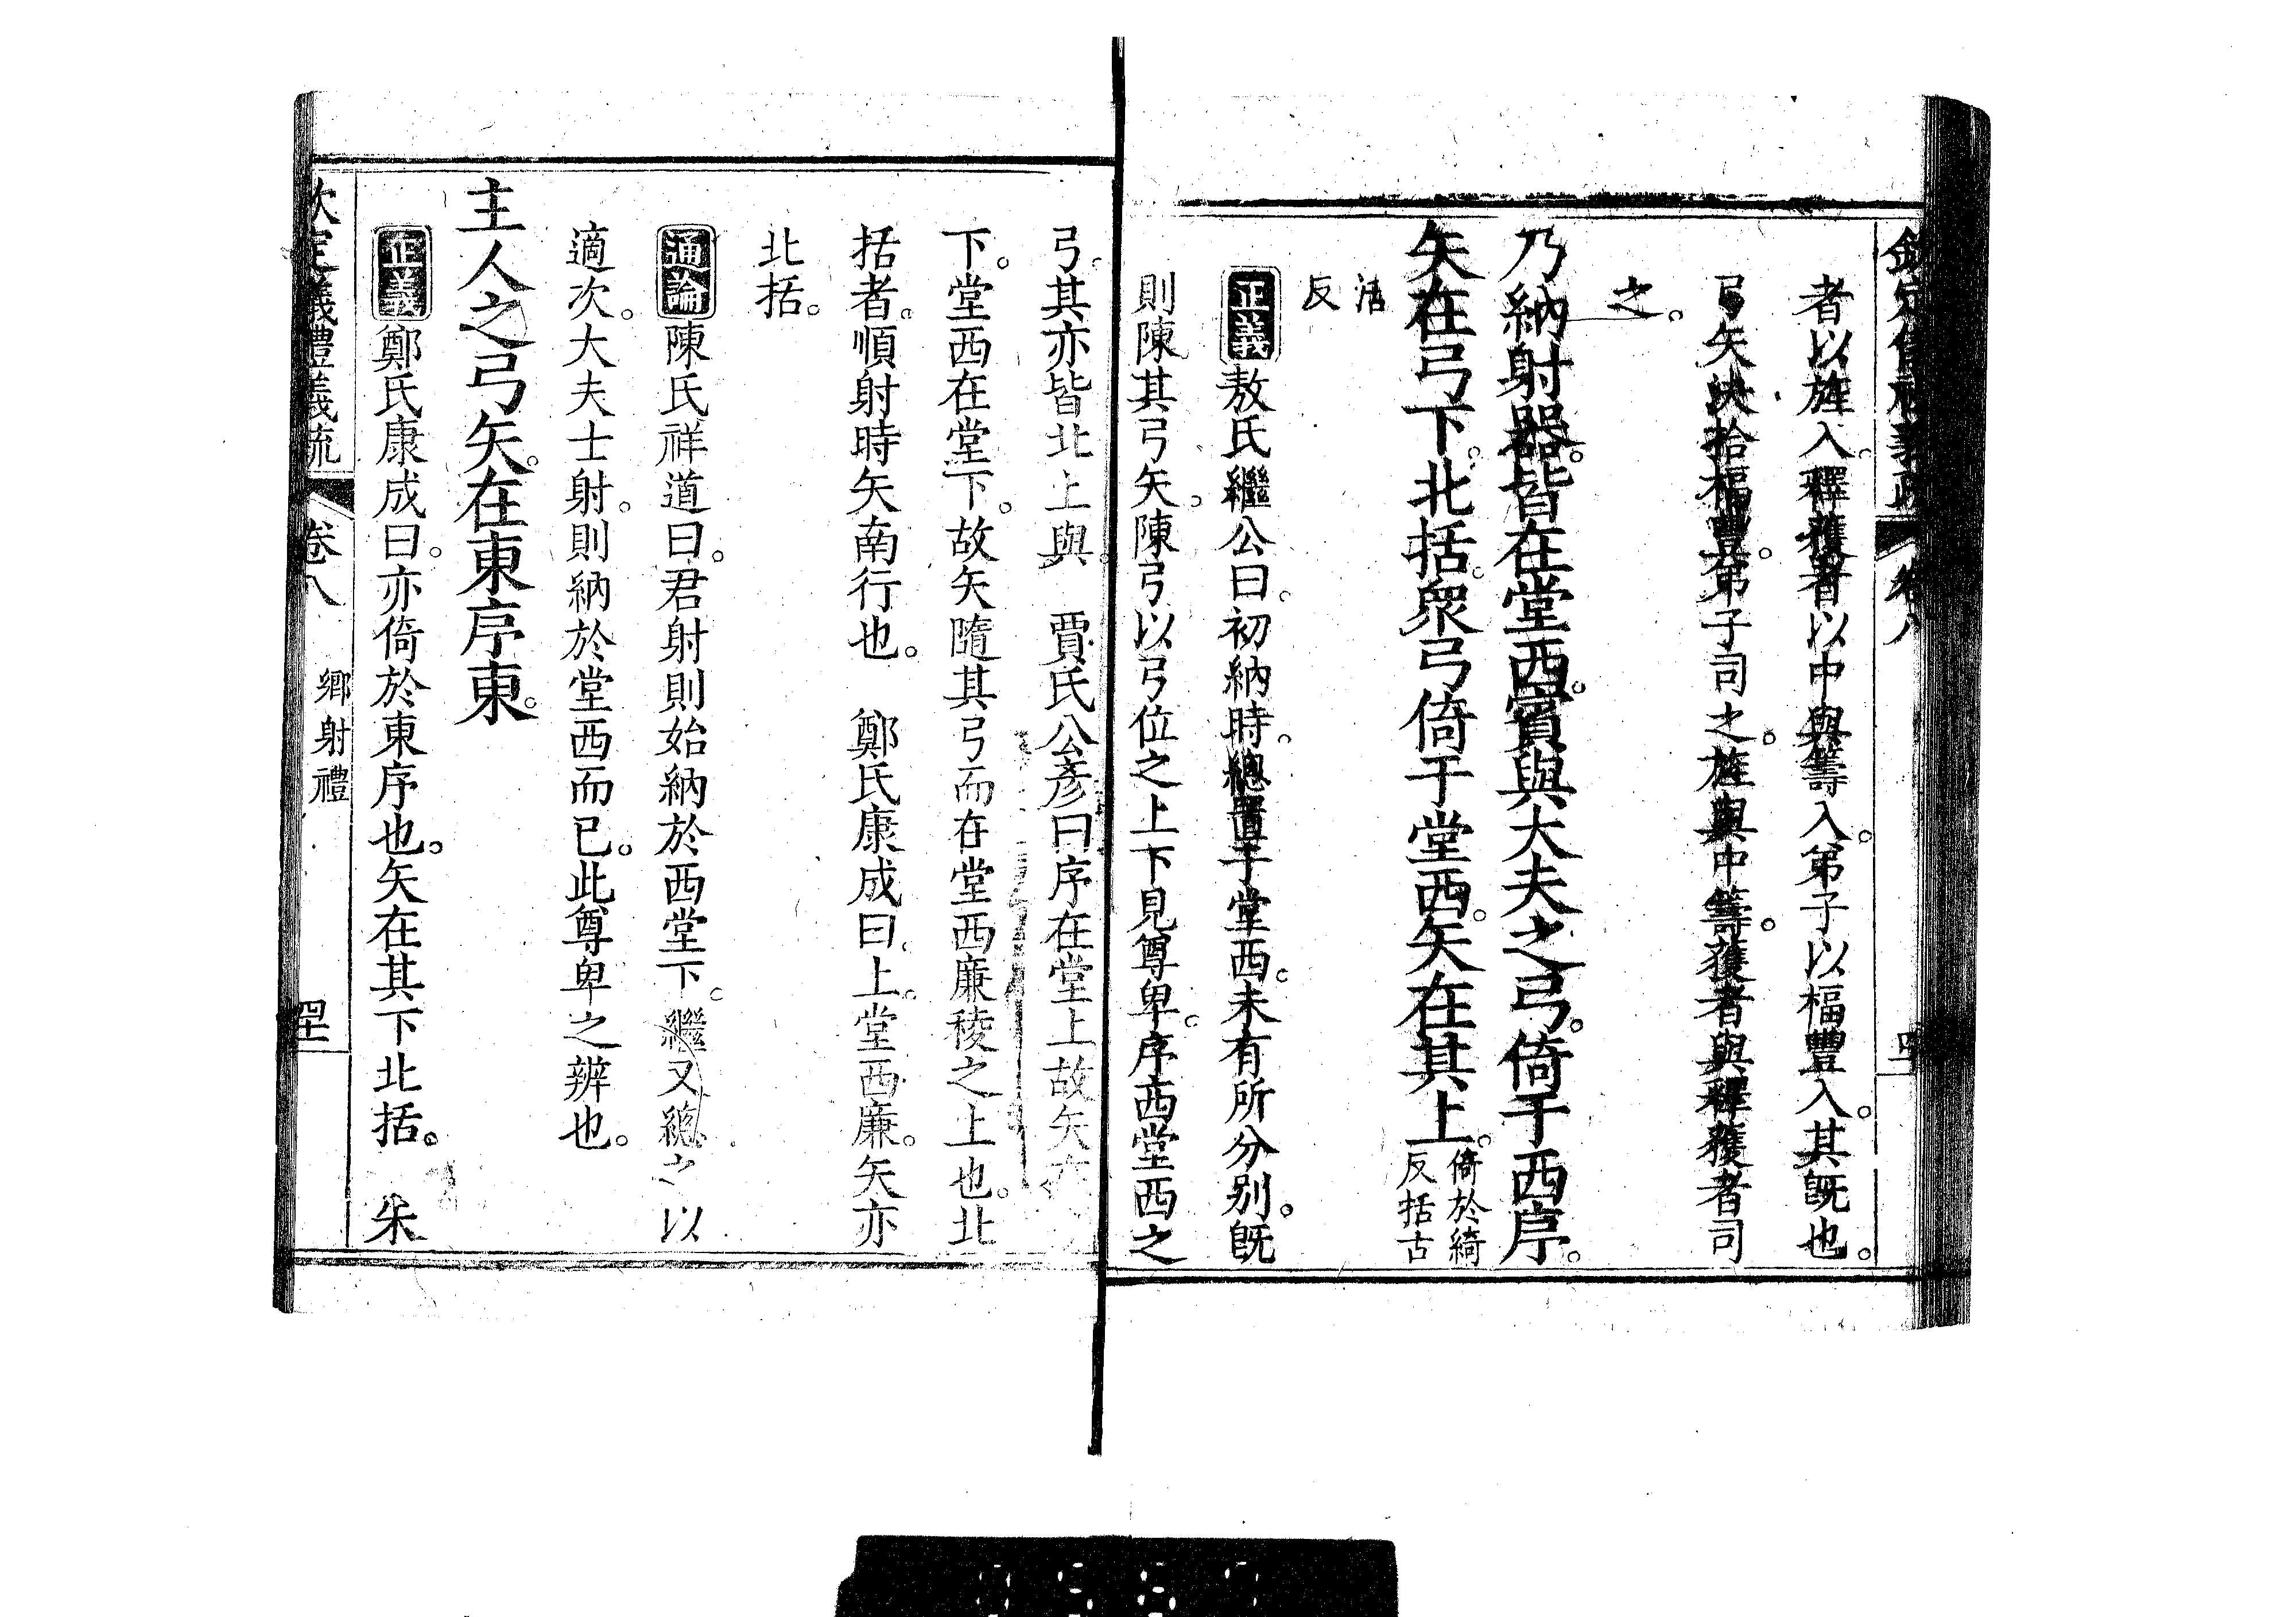 者以旌入。釋獲者以中與籌入。弟子以楅豐入。其旣也。
弓矢決拾楅豐。弟子司之。旌與中籌。獲者與釋獲者司
之。
乃納射器。皆在堂西。賓與大夫之弓。倚于西序。
矢在弓下。北括。眾弓倚于堂西。矢在其上。倚於綺
反括古
活
反
正義敖氏繼公曰。初納時。總置于堂西。未有所分别。旣
則陳其弓矢。陳弓以弓位之上下見尊卑。序西堂西之
弓。其亦皆北上與。 賈氏公彥曰序在堂上故矢在
下。堂西在堂下。故矢隨其弓而在堂西廉稜之上也。北
括者。順射時矢南行也。 鄭氏康成曰。上。堂西廉。矢亦
北括。
通論陳氏祥道曰。君射則始納於西堂下。繼又總之以
適次。大夫士射。則納於堂西而已。此尊卑之辨也。
主人之弓矢。在東序東。
正義鄭氏康成曰。亦倚於東序也。矢在其下北括。 朱
欽定儀禮義疏
卷八
鄉射禮